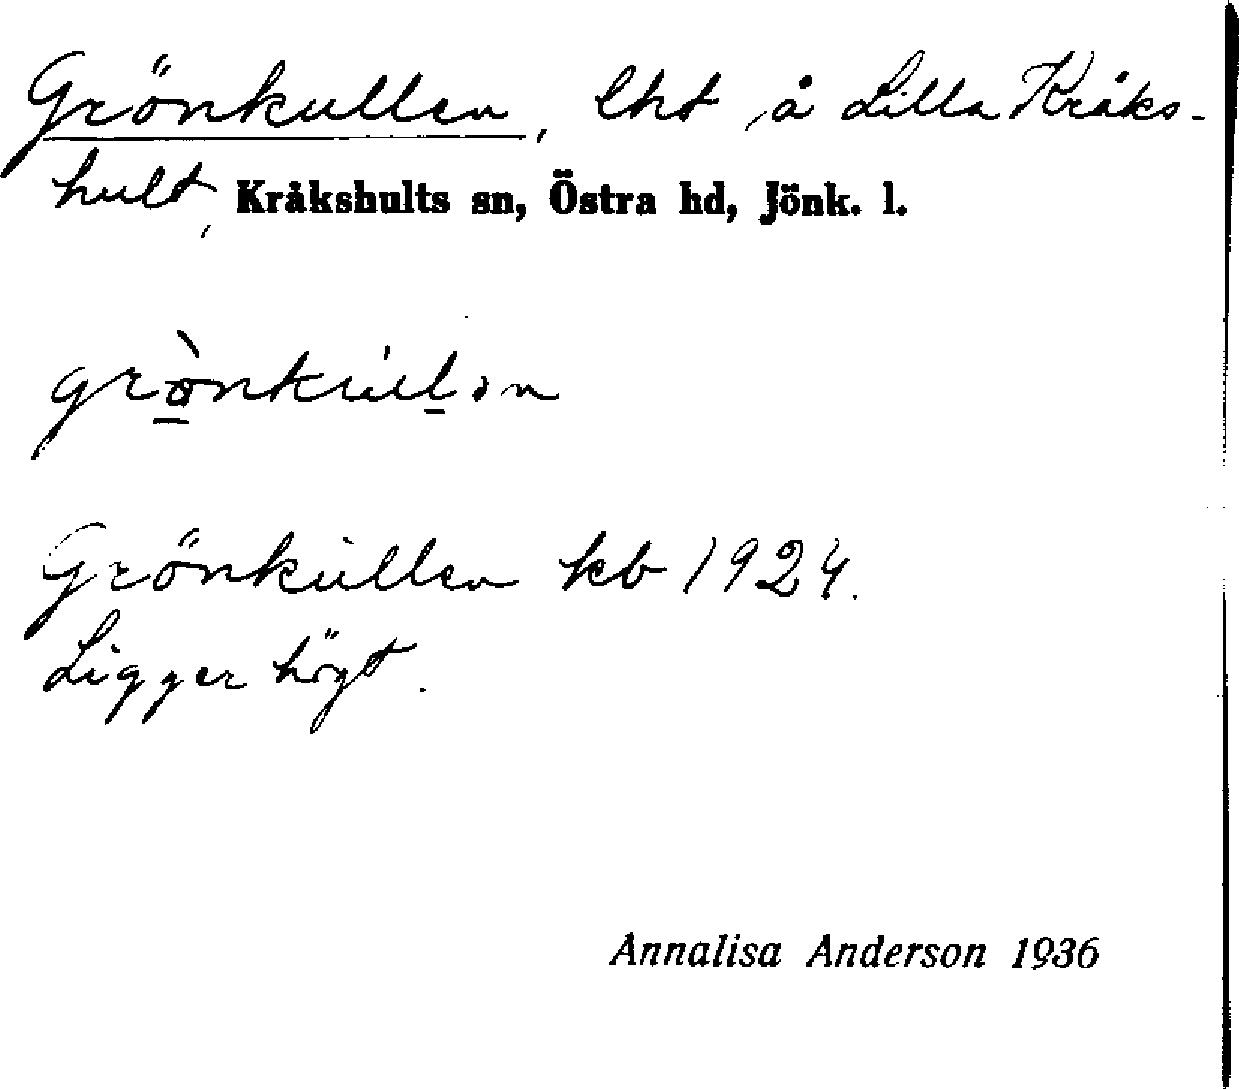 Grönkullen, lht å Lilla Kråks-
hult, Kråkshults sn, Östra hd, Jönk. l.
grö̀nkúlən
Grönkullen kb 1924.
Ligger högt.
Annalisa Anderson 1936